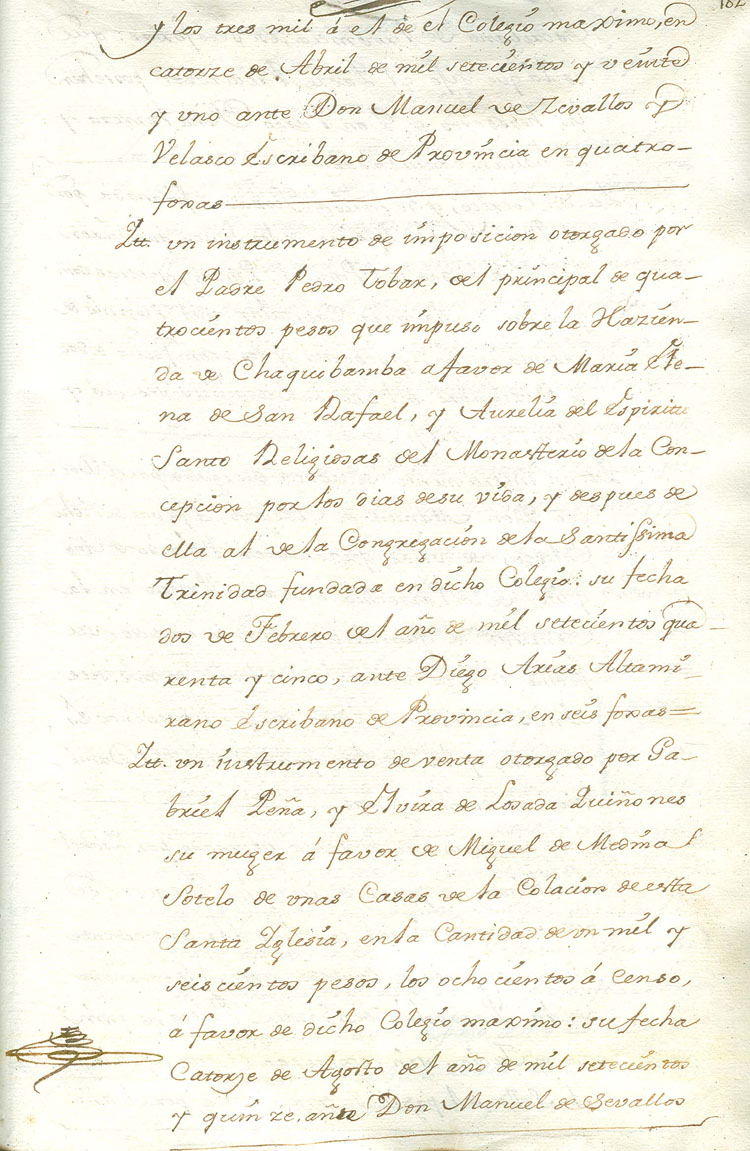 182
y los tres mil á el de el Colegio maximo, en
catorze de Abril de mil setecientos y veinte
y uno ante Don Manuel de Zevallos y
Velasco Escribano de Provincia en quatro
foxas
Itt. un instrumento de imposicion otorgado por
el Padre Pedro Tobar, del principal de qua-
trocientos pesos que impuso sobre la Hazien-
da de Chaquibamba a favor de Maria Ele-
na de San Rafael, y Aurelia del Espiritu
Santo Religiosas del Monasterio de la Con-
cepcion por los dias de su vida, y despues de
ella al de la Congregacion de la Santissima
Trinidad fundada en dicho Colegio: su fecha
dos de Febrero del año de mil setecientos qua-
renta y cinco, ante Diego Arias Altami-
rano Escribano de Provincia, en seis foxas=
Itt. un instrumento de venta otorgado por Ga-
briel Peña, y Elvira de Losada Quiñones
su muger á favor de Miguel de Medina
Sotelo de unas Casas de la Colacion de esta
Santa Iglesia, en la Cantidad de un mil y
seiscientos pesos, los ochocientos á Censo,
á favor de dicho Colegio maximo: su fecha
Catorze de Agosto del año de mil setecientos
y quinze, ante Don Manuel de Sevallos